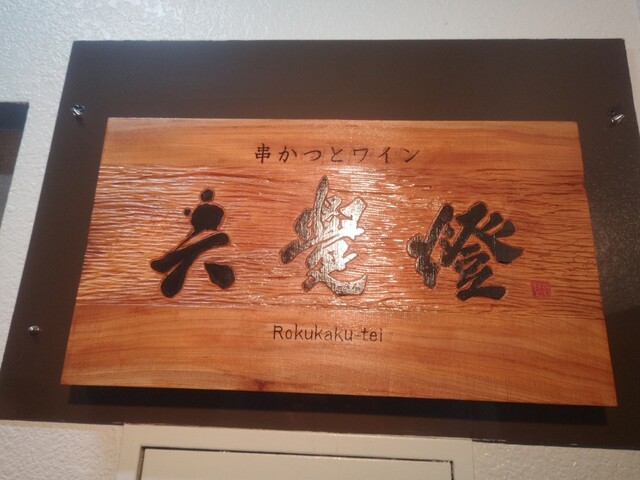 串かつとワイン
六覺燈
Rokukaku-tei